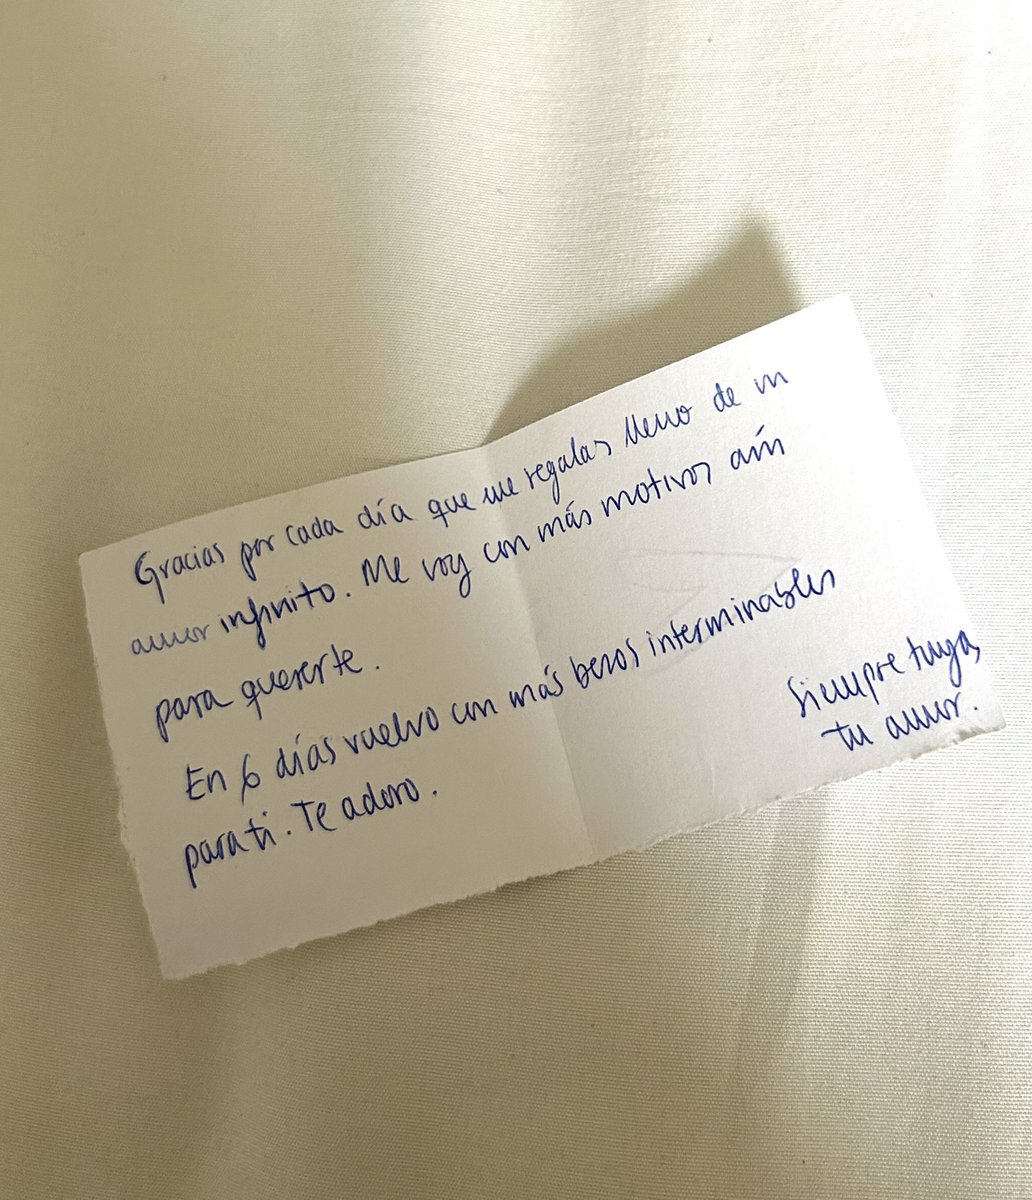 Gracias por cada día que me regalas lleno de un
amor infinito. Me voy con más motivos aún
para quererte.
En 6 días vuelvo con más besos interminables
para ti. Te adoro.
Siempre tuya,
tu amor.